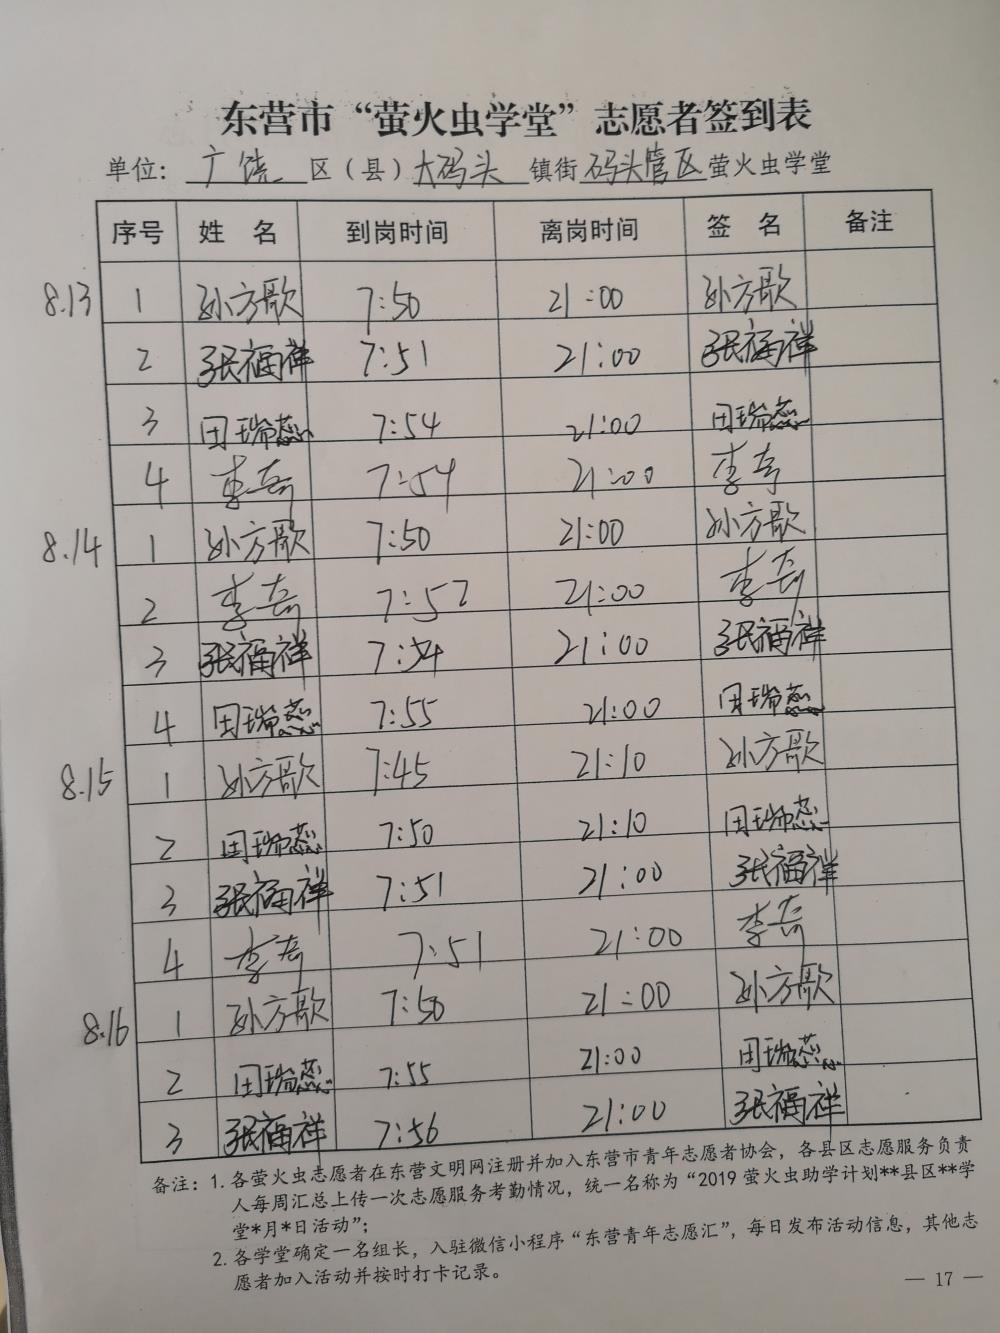 东营市“萤火虫学堂”志愿者签到表
单位：广饶 区（县）大码头 镇街 码头管区 萤火虫学堂
序号 姓 名 到岗时间 离岗时间 签 名 备注
8.13 1 孙方歌 7:50 21:00 孙方歌
2 张福祥 7:51 21:00 张福祥
3 田瑞蕊 7:54 21:00 田瑞蕊
4 李奇 7:54 21:00 李奇
8.14 1 孙方歌 7:50 21:00 孙方歌
2 李奇 7:52 21:00 李奇
3 张福祥 7:54 21:00 张福祥
4 田瑞蕊 7:55 21:00 田瑞蕊
8.15 1 孙方歌 7:45 21:10 孙方歌
2 田瑞蕊 7:50 21:10 田瑞蕊
3 张福祥 7:51 21:00 张福祥
4 李奇 7:51 21:00 李奇
8.16 1 孙方歌 7:50 21:00 孙方歌
2 田瑞蕊 7:55 21:00 田瑞蕊
3 张福祥 7:56 21:00 张福祥
备注：1. 各萤火虫志愿者在东营文明网注册并加入东营市青年志愿者协会，各县区志愿服务负责
人每周汇总上传一次志愿服务考勤情况，统一名称为“2019 萤火虫助学计划**县区**学
堂*月*日活动”；
2. 各学堂确定一名组长，入驻微信小程序“东营青年志愿汇”，每日发布活动信息，其他志
愿者加入活动并按时打卡记录。
— 17 —